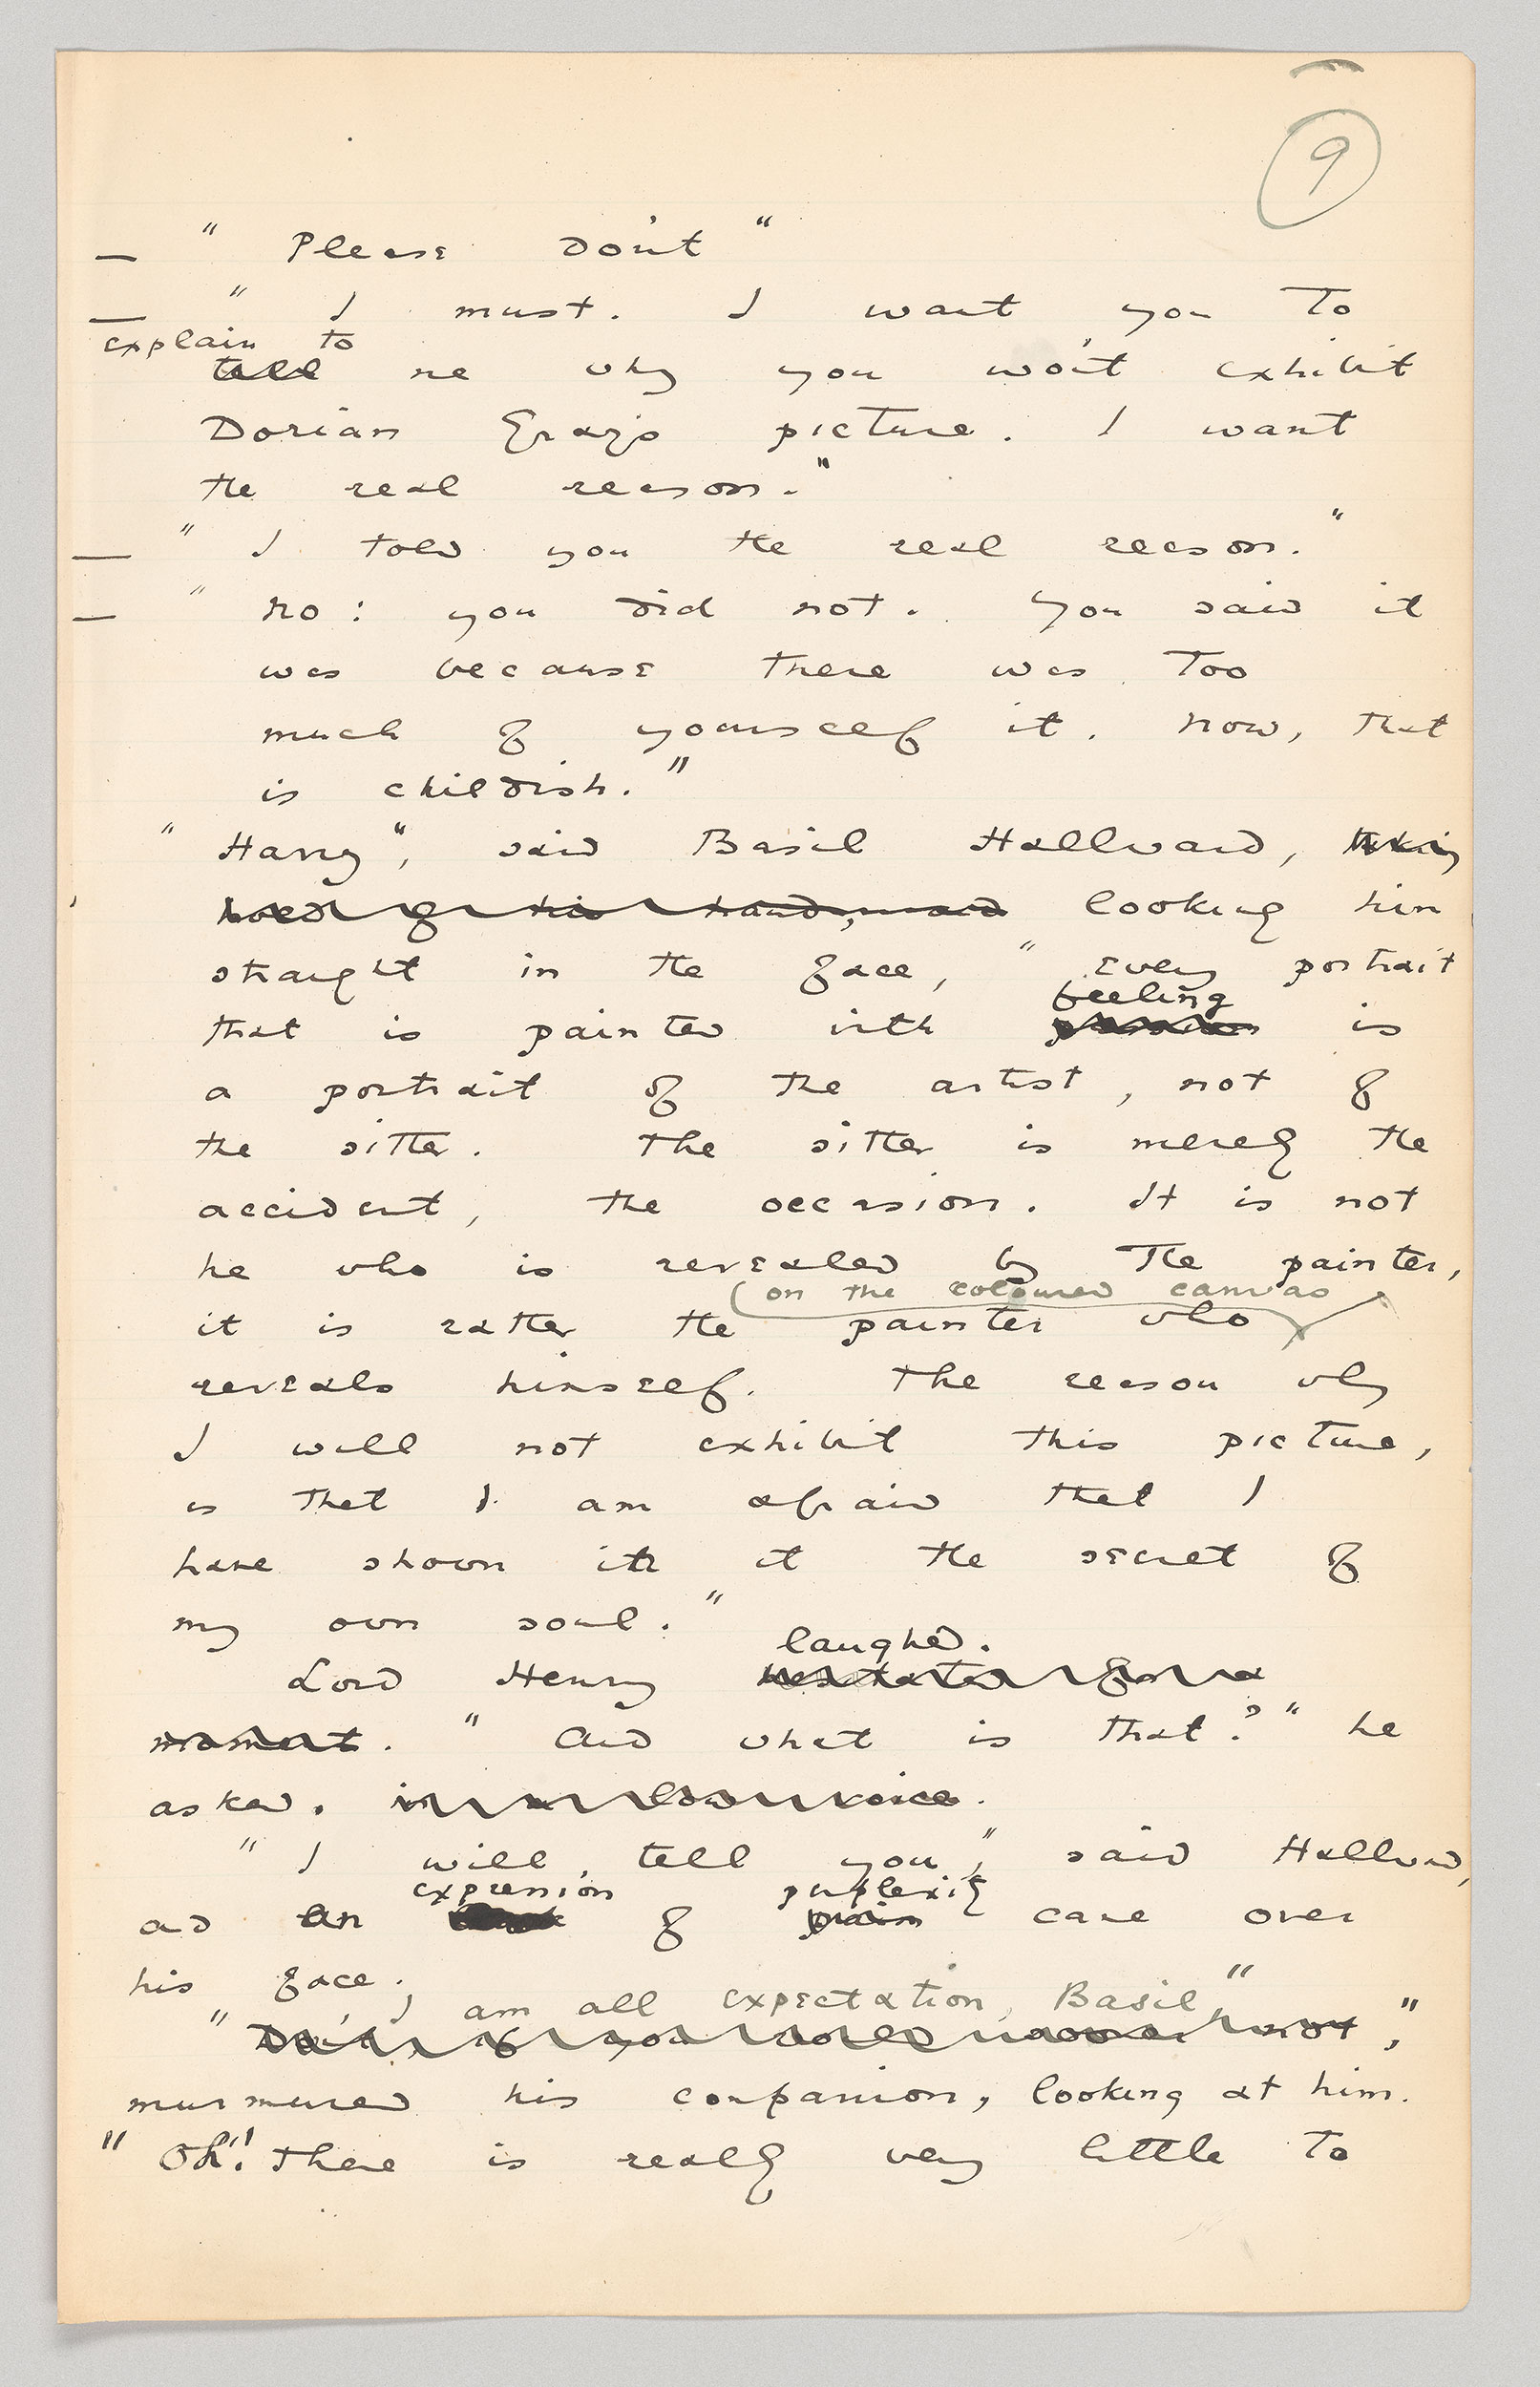 9
— " Please Don't "
— " I must. I want you to
explain to
tell me why you won't exhibit
Dorian Gray's picture. I want
the real reason."
— " I told you the real reason."
— " No: you did not. You said it
was because there was too
much of yourself it. Now, that
is childish."
" Harry", said Basil Hallward, taking
hold of his hand, and looking him
straight in the face, " every portrait
feeling
that is painted with passion is
a portrait of the artist, not of
the sitter. The sitter is merely the
accident, the occasion. It is not
he who is revealed by the painter,
on the coloured canvas
it is rather the painter who
reveals himself. The reason why
I will not exhibit this picture,
is that I am afraid that I
have shown in it the secret of
my own soul."
laughed.
Lord Henry hesitated for a
moment. " And what is that?" he
asked. in a low voice.
" I will tell you", said Hallward,
expression perplexity
and an look of pain came over
his face.
I am all expectation, Basil,"
" Don't, if you would sooner not,"
murmured his companion, looking at him.
" Oh!" there is really very little to